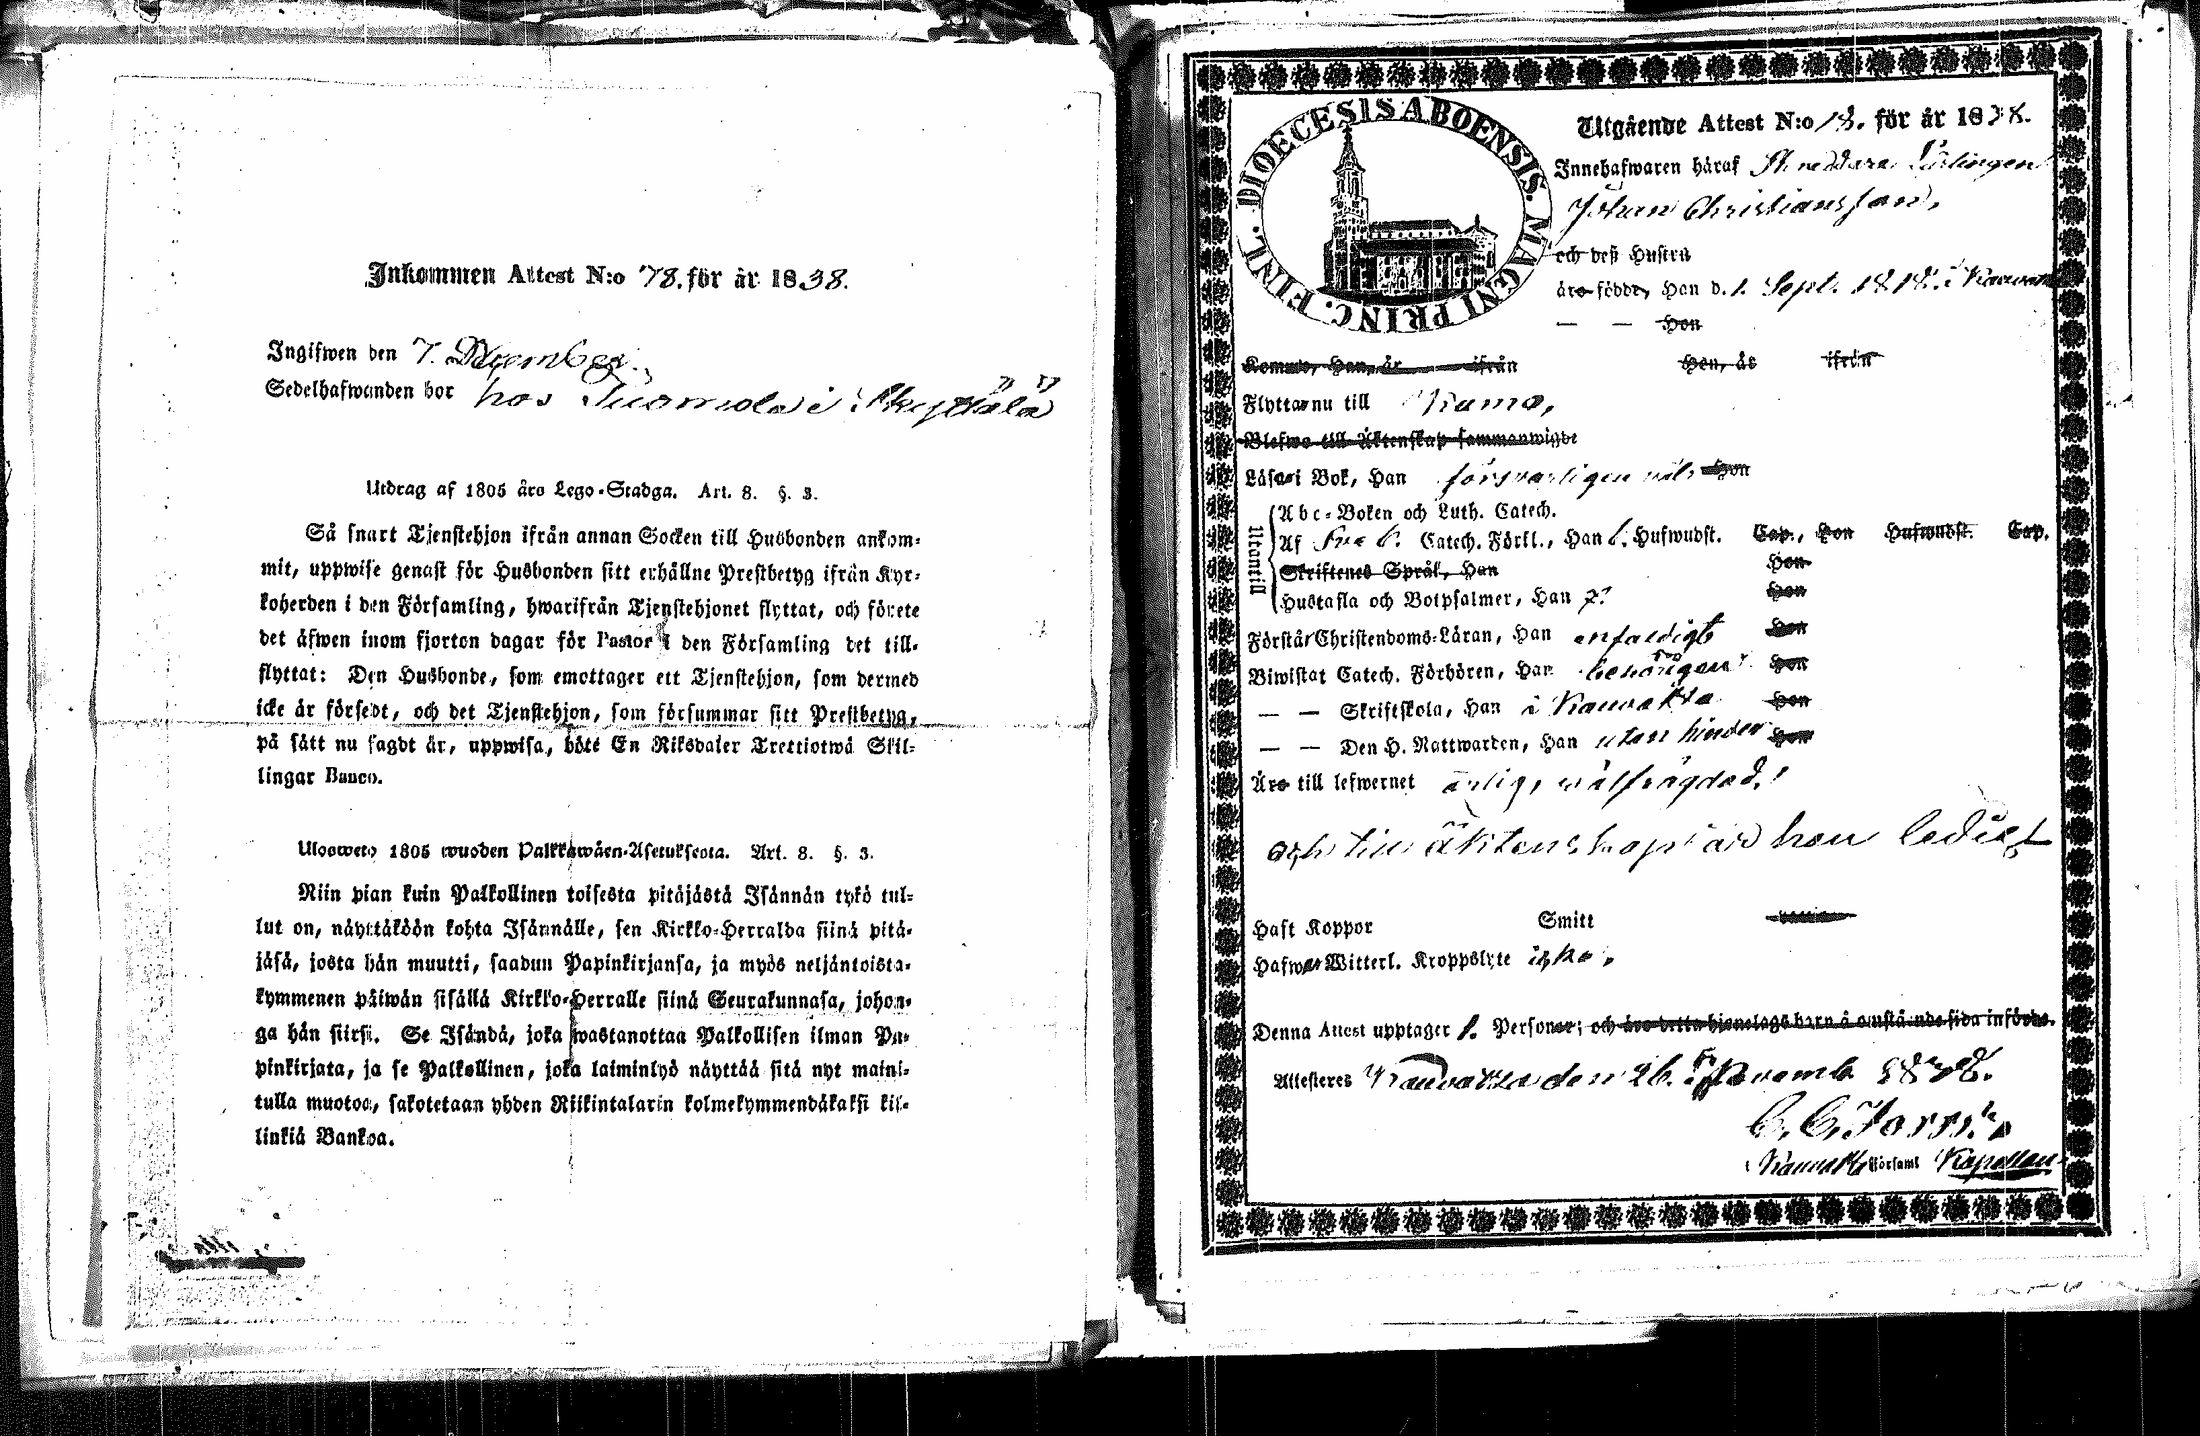 Inkommen Attest N:o 78. för år 1838.
Ingifwen den 7. December.
Sedelhafwanden bor hos Tuomola i Skyttälä
Utdrag af 1805 års Lego-Stadga. Art. 8. §. 3.
Så snart Tjenstehjon ifrån annan Socken till Husbonden ankom-
mit, uppwise genast för Husbonden sitt erhållne Prestbetyg ifrån Kyr-
koherden i den Församling, hwarifrån Tjenstehjonet flyttat, och förete
det äfwen inom fjorton dagar för Pastor i den Församling det till-
flyttat: Den Husbonde, som emottager ett Tjenstehjon, som dermed
icke är försedt, och det Tjenstehjon, som försummar sitt Prestbetyg,
på sätt nu sagdt är, uppwisa, böte En Riksdaler Trettiotwå Skil-
lingar Banco.
Ulosweto 1805 wuoden Palkkawäen-Asetuksesta. Art. 8. §. 3.
Niin pian kuin Palkollinen toisesta pitäjästä Isännän tykö tul-
lut on, näyttäköön kohta Isännälle, sen Kirkko-Herralda siinä pitä-
jäsä, josta hän muutti, saadun Papinkirjansa, ja myös neljäntoista-
kymmenen päiwän sisällä Kirkko-Herralle siinä Seurakunnasa, johon-
ga hän siirsi. Se Isändä, joka wastanottaa Palkollisen ilman Pa-
pinkirjata, ja se Palkollinen, joka laiminlyö näyttää sitä nyt maini-
tulla muotoa, sakotetaan yhden Riikintalarin kolmekymmendäkaksi kil-
linkiä Bankoa.
DIOECESIS ABOENSIS. MAGNI PRINC. FINL.
Utgående Attest N:o 18. för år 1838.
Innehafwaren häraf
Johan Christiansson,
och deß Hustru
äro födde, Han d. 1. Sept. 1818. i
— — Hon
Kommo, Han, år ifrån Hon, år ifrån
Flytta nu till Kumo,
Blefwo till Äktenskap sammanwigde
Läsa i Bok, Han försvarligen väl, Hon
Utantill
Abc-Boken och Luth. Catech.
Af Sveb. Catech. Förkl., Han 6. Hufwudst. Cap., Hon Hufwudst. Cap.
Skriftenes Språk, Han Hon
Hustafla och Botpsalmer, Han 7. Hon
Förstår Christendoms-Läran, Han enfaldigt Hon
Biwistat Catech. Förhören, Han behörigen Hon
— — Skriftskola, Han i Kauvatsa Hon
— — Den H. Nattwarden, Han utan hinder Hon
Äro till lefwernet ärlig, wälfrägdad,
och till äktenskap är han ledig
Haft Koppor Smitt
Hafwa Witterl. Kroppslyte icke,
Denna Attest upptager 1. Personer; och äro detta hjonelags barn å omstående sida införde.
Attesteres Kauvatsa den 26. Novemb. 1838.
Kauvatsa Församl. Kapellan